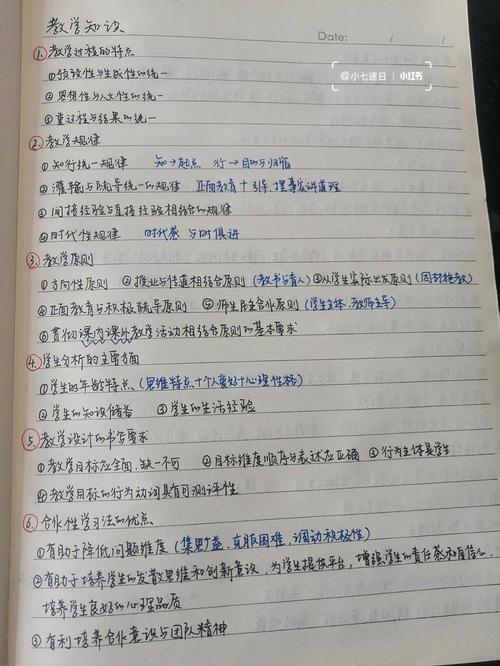 教学知识
Date: / /
@小七逐日 | 小红书
1. 教学过程的特点
①预设性与生成性的统一
②思想性与人文性的统一
③重过程与结果的统一
2. 教学规律
①知行统一规律 知→起点 行→目的与归宿
②灌输与疏导统一的规律 正面教育+引导,摆事实讲道理
③间接经验与直接经验相结合的规律
④时代性规律 时代感 与时俱进
3. 教学原则
①方向性原则 ②授业与传道相结合原则(教书与育人)③从学生实际出发原则(因材施教)
④正面教育与积极疏导原则 ⑤师生民主合作原则(学生主体、教师主导)
⑥贯彻课内课外教学活动相结合原则的基本要求
4. 学生分析的主要方面
①学生的年龄特点、(思维特点+个人爱好+心理性格)
②学生的知识储备 ③学生的生活经验
5. 教学设计的书写要求
①教学目标应全面,缺一不可 ②目标维度顺序与表达应正确 ③行为主体是学生
④教学目标的行为动词具有可测评性
6. 合作性学习法的优点
①有助于降低问题难度(集思广益,克服困难,调动积极性)
②有助于培养学生的发散思维和创新意识,为学生提供平台,增强学生的责任感和自信心,
培养学生良好的心理品质
③有利培养合作意识与团队精神